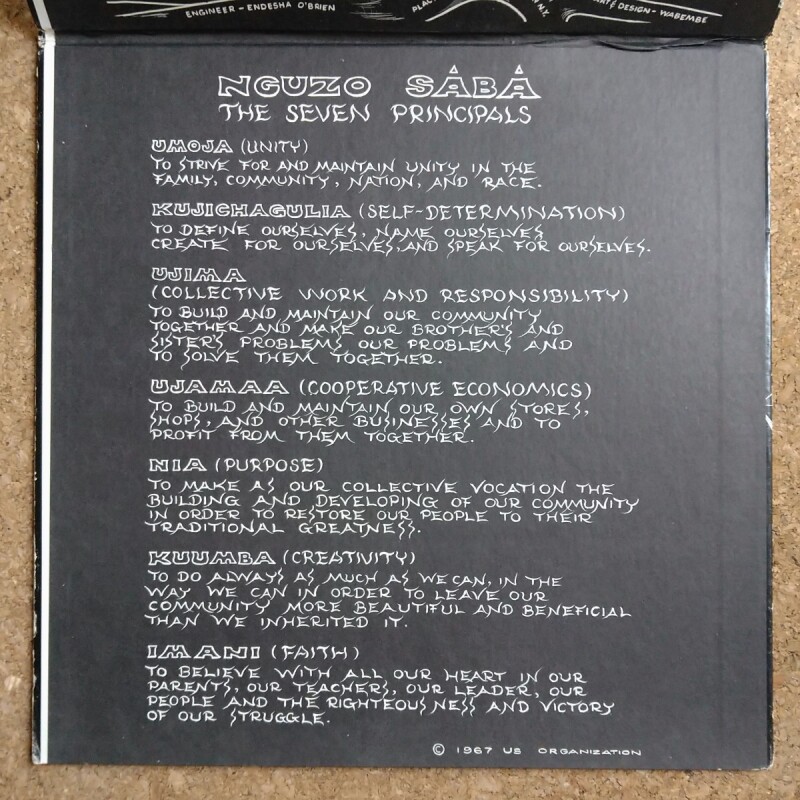 ENGINEER - ENDESHA O'BRIEN
ART & DESIGN - WABEMBE
NGUZO SÂBÂ
THE SEVEN PRINCIPALS
UMOJA (UNITY)
TO STRIVE FOR AND MAINTAIN UNITY IN THE
FAMILY, COMMUNITY, NATION, AND RACE.
KUJICHAGULIA (SELF-DETERMINATION)
TO DEFINE OURSELVES, NAME OURSELVES
CREATE FOR OURSELVES, AND SPEAK FOR OURSELVES.
UJIMA
(COLLECTIVE WORK AND RESPONSIBILITY)
TO BUILD AND MAINTAIN OUR COMMUNITY
TOGETHER AND MAKE OUR BROTHER'S AND
SISTER'S PROBLEMS OUR PROBLEMS AND
TO SOLVE THEM TOGETHER.
UJAMAA (COOPERATIVE ECONOMICS)
TO BUILD AND MAINTAIN OUR OWN STORES,
SHOPS, AND OTHER BUSINESSES AND TO
PROFIT FROM THEM TOGETHER.
NIA (PURPOSE)
TO MAKE AS OUR COLLECTIVE VOCATION THE
BUILDING AND DEVELOPING OF OUR COMMUNITY
IN ORDER TO RESTORE OUR PEOPLE TO THEIR
TRADITIONAL GREATNESS.
KUUMBA (CREATIVITY)
TO DO ALWAYS AS MUCH AS WE CAN, IN THE
WAY WE CAN IN ORDER TO LEAVE OUR
COMMUNITY MORE BEAUTIFUL AND BENEFICIAL
THAN WE INHERITED IT.
IMANI (FAITH)
TO BELIEVE WITH ALL OUR HEART IN OUR
PARENTS, OUR TEACHERS, OUR LEADER, OUR
PEOPLE AND THE RIGHTEOUSNESS AND VICTORY
OF OUR STRUGGLE.
© 1967 US ORGANIZATION